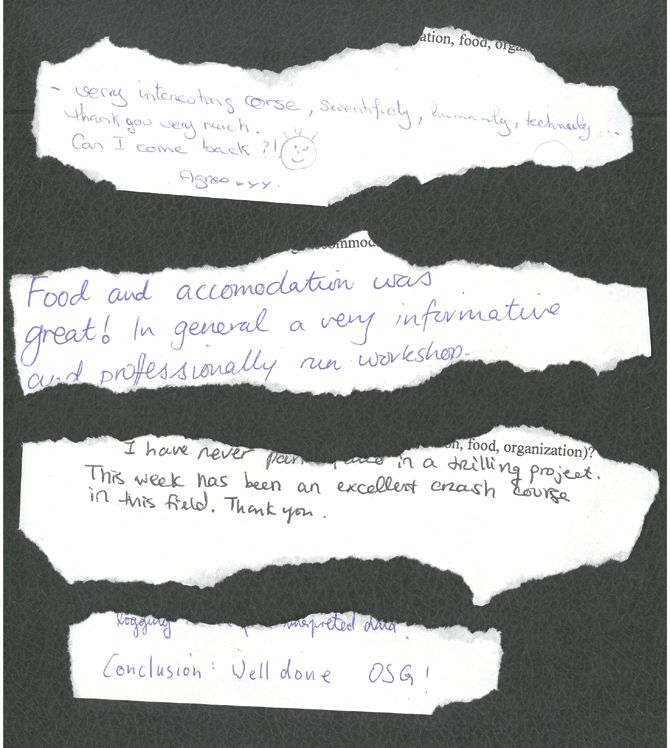 ation, food, orga
- verry interesting corse, scientificly, humanity, technicly...
Thank you very much.
Can I come back ?!
Agree
accommod
Food and accomodation was
great! In general a very informative
and professionally run workshop.
on, food, organization)?
I have never in a drilling project.
This week has been an excellent crash course
in this field. Thank you.
logging interpreted data.
Conclusion: Well done OSG!